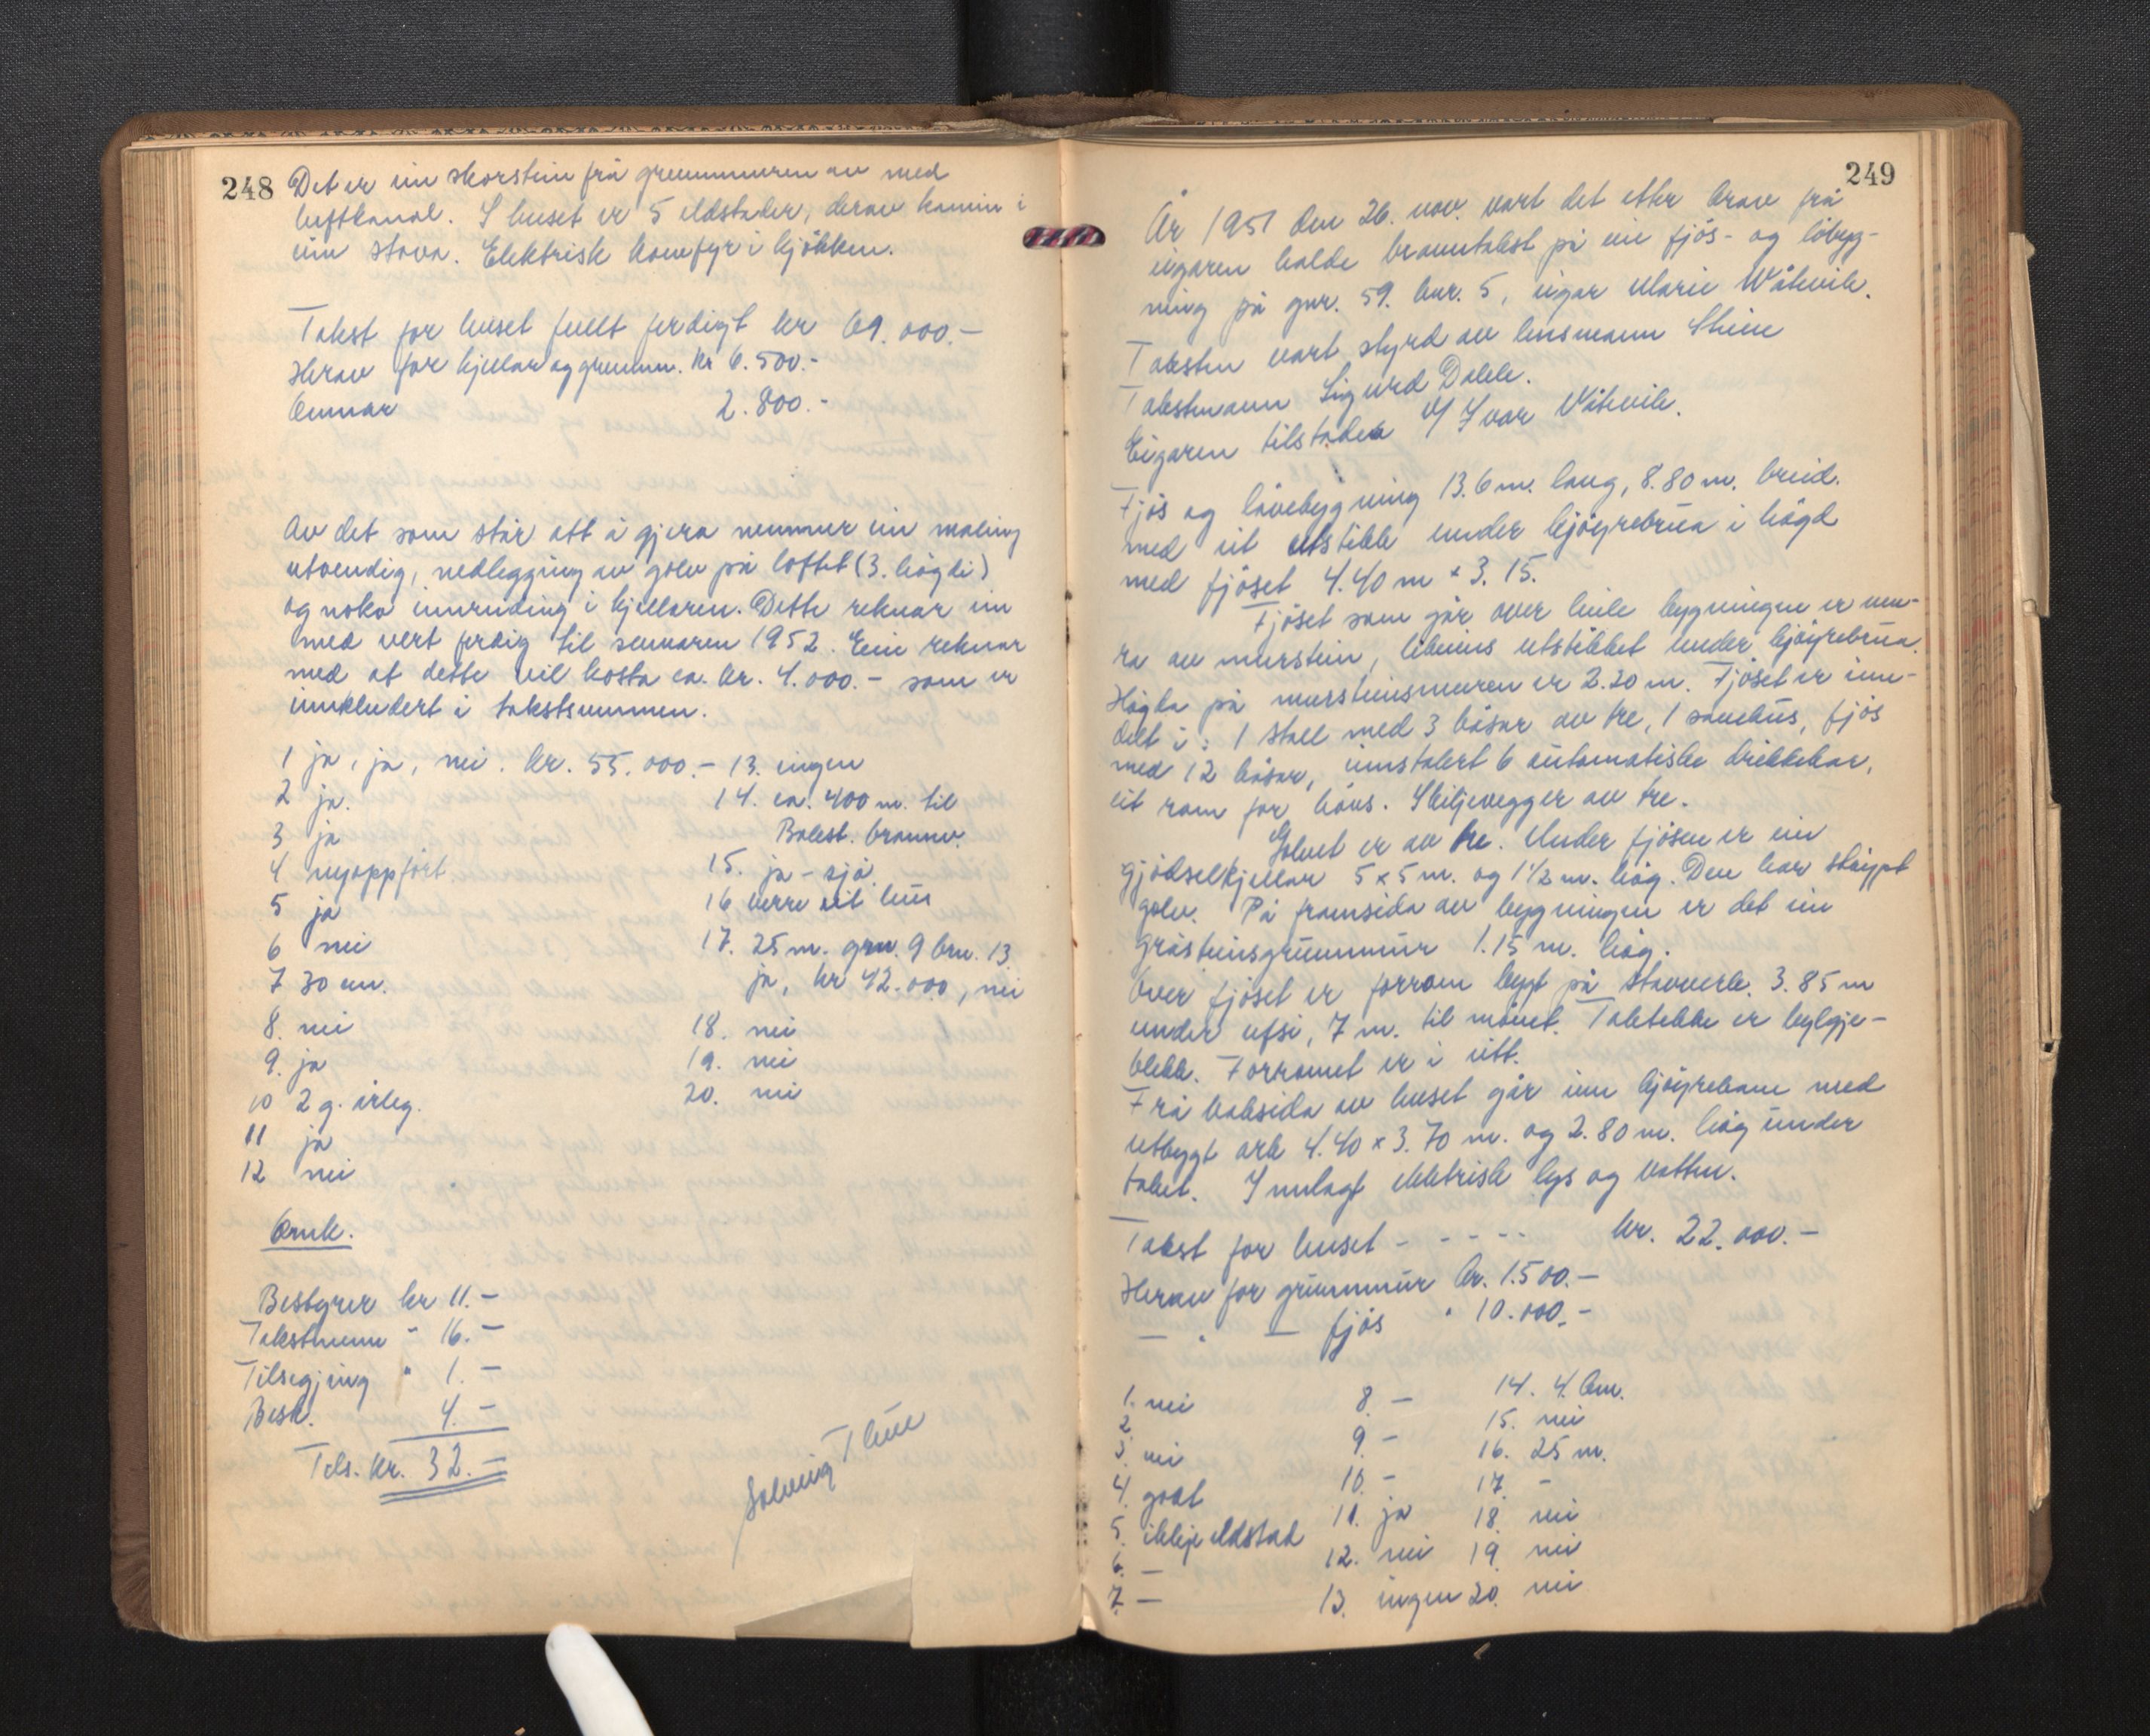 248
Det er ein skorstein frå grunnmuren av med
luftkanal. I huset er 5 eldstader, derav kamin i
ein stova. Elektrisk komfyr i kjökken.
Takst for huset fullt ferdigt kr 69.000.-
Herav for kjellar og grunnm. kr 6.500.-
2.800.-
Av det som står att å gjera nemner ein maling
utvendig, nedlegging av golv på loftet (3. högdi)
og noko innreiding i kjellaren. Dette reknar ein
med vert ferdig til sumaren 1952. Ein reknar
med at dette vil kosta ca. kr. 4.000.- som er
innkludert i takstsummen.
1 ja, ja, nei. kr. 55.000.-
2 ja.
3 ja
4 nyoppfört.
5 ja
6 nei
7 30 cm.
8. nei
9. ja
10 2 g. årleg.
11 ja
12 nei
13. ingen
14. ca. 400 m. til
Balest. brannv.
15. ja - sjö
16 verre eit hus
17. 25 m. gnr. 9 bnr. 13
ja, kr 42.000, nei
18. nei
19. nei
20. nei
Omk.
Bestyrer kr 11.-
Takstmenn " 16.-
Tilsegjing " 1.-
Besk. 4.-
Tils. kr. 32.-
Solveig
249
År 1951 den 26. nov. vart det etter krav frå
eigaren halde branntakst på ein fjös- og löbyg-
ning på gnr. 59. bnr. 5, eigar Marie Våtevik.
Taksten vart styrd av lensmann
Takstmann Sigurd
Eigaren tilstades v/ Ivar Våtevik.
Fjös og lövebygning 13.6 m. lang, 8.80 m. breid.
med eit utstikk under kjöyrebrua i högd
med fjöset 4.40 m x 3.15.
Fjöset som går over heile bygningen er mu-
ra av murstein, likeeins utstikket under kjöyrebrua.
Högda på mursteinsmuren er 2.20 m. Fjöset er inn-
delt i: 1 stall med 3 båsar av tre, 1 sauehus, fjös
med 12 båsar, innstalert 6 automatiske drikkekar,
eit rom for höns. Skiljevegger av tre.
Golvet er av tre. Under fjösen er ein
gjödselkjellar 5 x 5 m. og 1 1/2 m. hög. Den har stöypt
golv. På framsida av bygningen er det ein
gråsteinsgrunnmur 1.15 m. hög.
Over fjöset er forrom bygt på stavverk. 3.85 m
under ufsi, 7 m. til mönet. Taktekke er bylgje-
blekk. Forromet er i eitt.
Frå baksida av huset går inn kjöyrebane med
utbygt ark 4.40 x 3.70 m. og 2.80 m. hög under
taket. Innlagt elektrisk lys og vatten.
Takst for huset - - - - - kr. 22.000.-
Herav for grunnmur kr. 1.500.-
— " — fjös " 10.000.-
1. nei
2.
3. nei
4. godt
5. ikkje eldstad
6. —
7. —
8. —
9. -
10. -
11. ja
12. nei
13. ingen
14. 4 km.
15. nei
16. 25 m.
17. -
18. nei
19. nei
20. nei